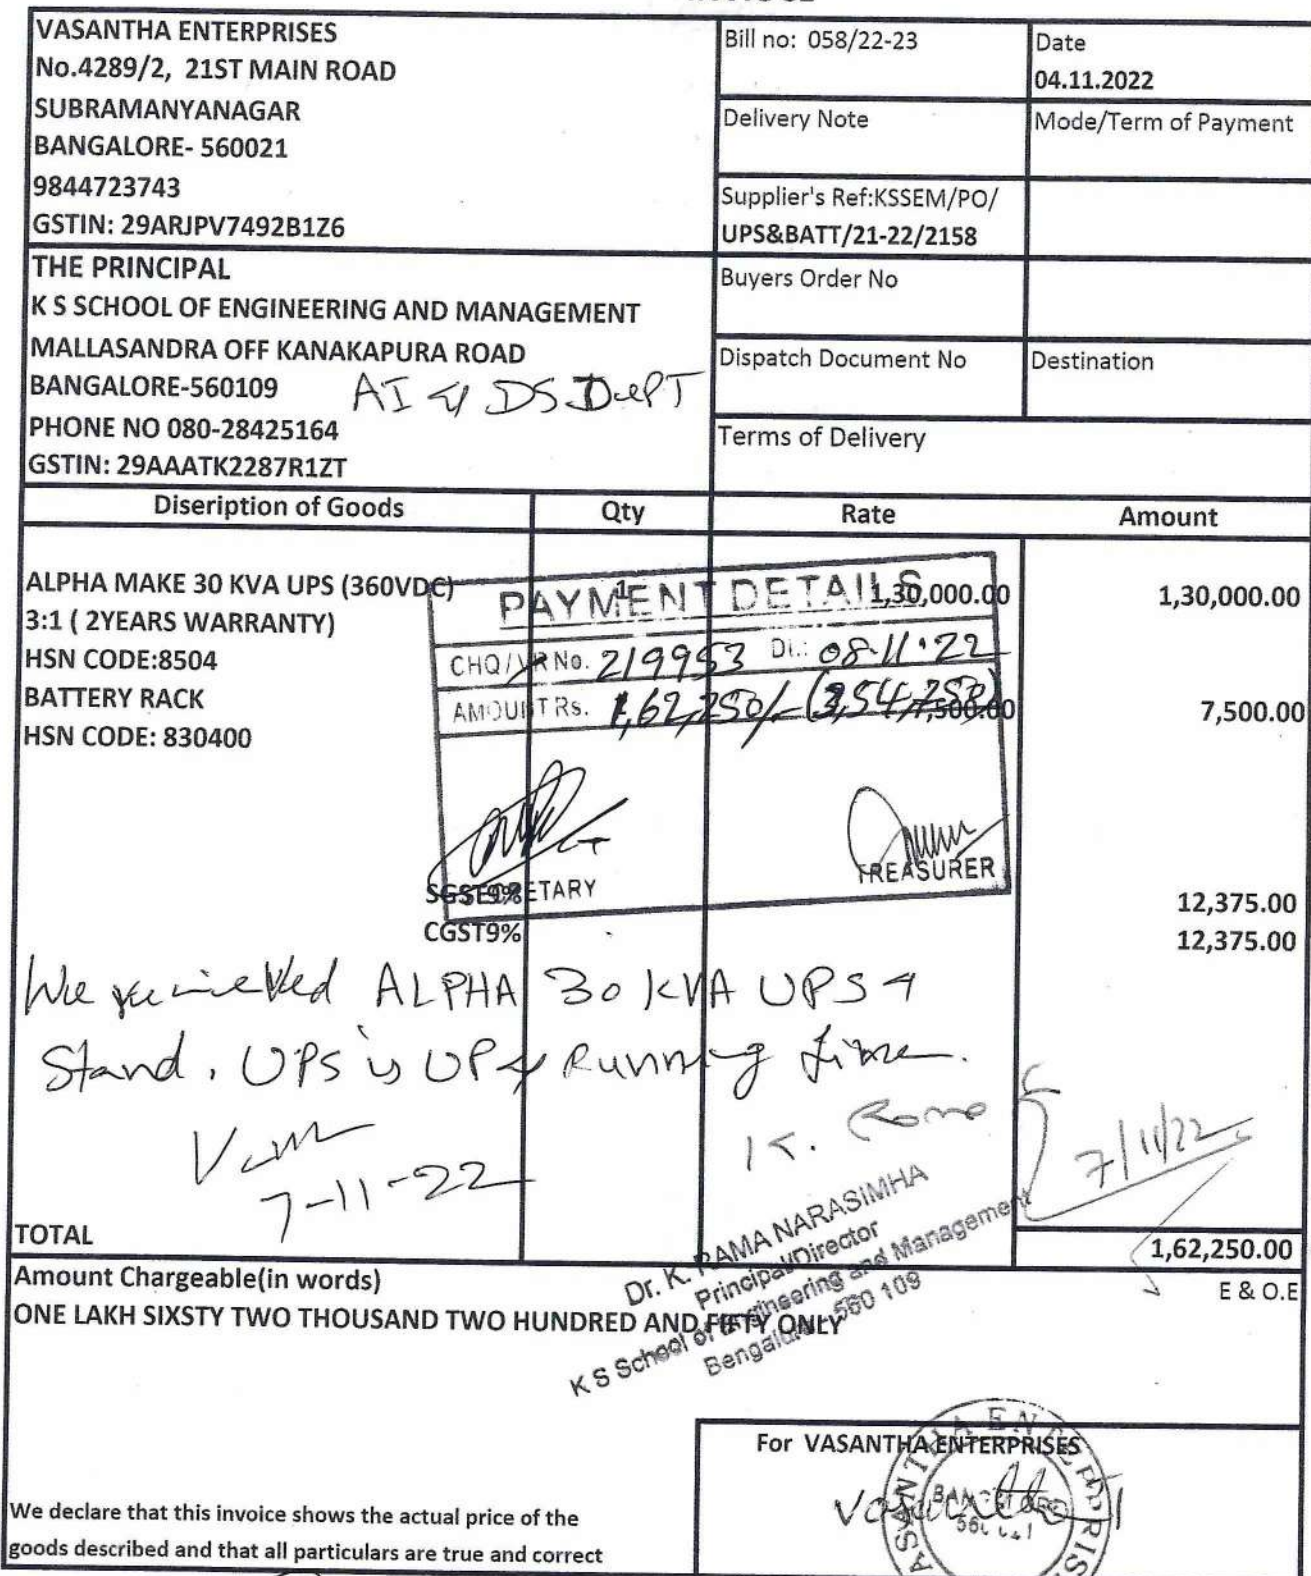 VASANTHA ENTERPRISES
No.4289/2, 21ST MAIN ROAD
SUBRAMANYANAGAR
BANGALORE- 560021
9844723743
GSTIN: 29ARJPV7492B1Z6
Bill no: 058/22-23
Date
04.11.2022
Delivery Note
Mode/Term of Payment
Supplier's Ref:KSSEM/PO/
UPS&BATT/21-22/2158
THE PRINCIPAL
K S SCHOOL OF ENGINEERING AND MANAGEMENT
MALLASANDRA OFF KANAKAPURA ROAD
BANGALORE-560109
AI & DS DEPT
PHONE NO 080-28425164
GSTIN: 29AAATK2287R1ZT
Buyers Order No
Dispatch Document No
Destination
Terms of Delivery
Diseription of Goods Qty Rate Amount
ALPHA MAKE 30 KVA UPS (360VDC) 1 1,30,000.00 1,30,000.00
3:1 ( 2YEARS WARRANTY)
HSN CODE:8504
BATTERY RACK 7,500.00 7,500.00
HSN CODE: 830400
PAYMENT DETAILS
CHQ/VR No. 219953 Dt.: 08-11-22
AMOUNT Rs. 1,62,250/-
SECRETARY
TREASURER
SGST9% 12,375.00
CGST9% 12,375.00
We ALPHA 30 KVA UPS &
Stand. UPS is UP & Running
7-11-22
K. Rama
7/11/22
Dr. K. RAMA NARASIMHA
Principal/Director
K S School of Engineering and Management
Bengaluru - 560 109
TOTAL 1,62,250.00
Amount Chargeable(in words) E & O.E
ONE LAKH SIXSTY TWO THOUSAND TWO HUNDRED AND FIFTY ONLY
For VASANTHA ENTERPRISES
We declare that this invoice shows the actual price of the
goods described and that all particulars are true and correct